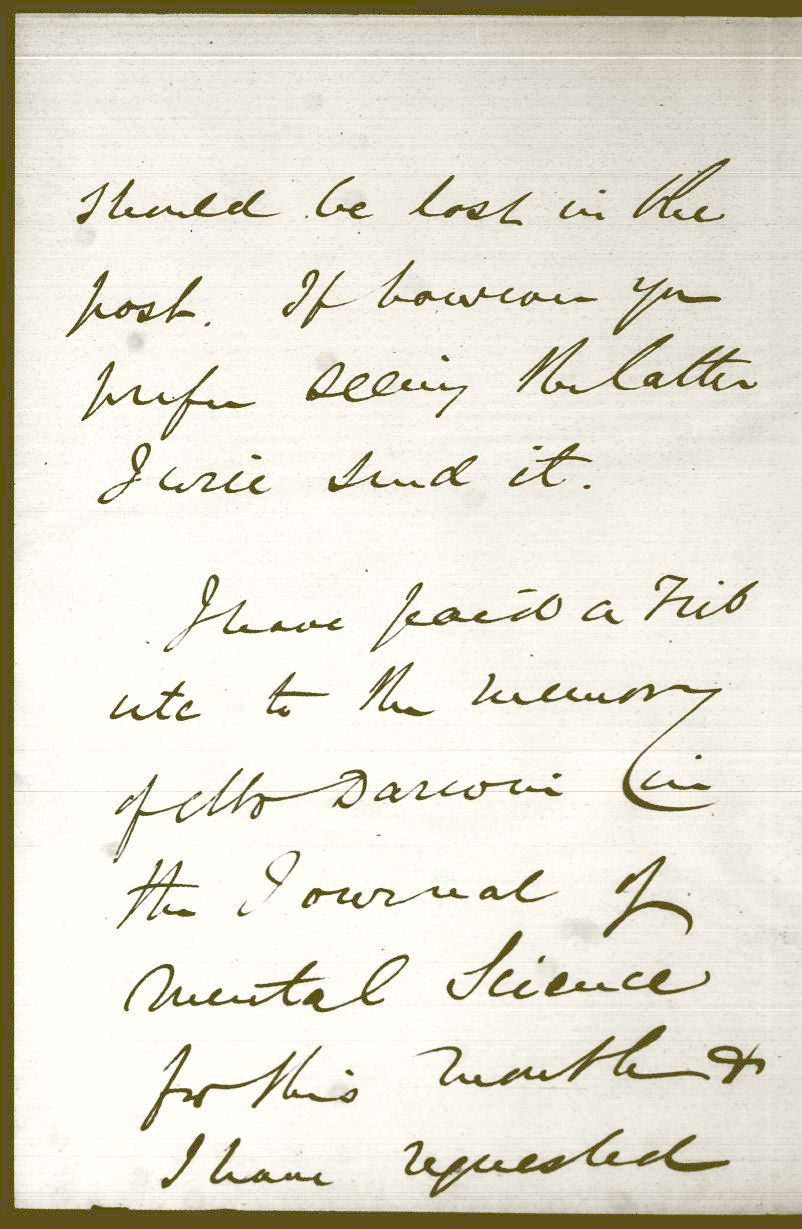 should be lost in the
post. If however you
prefer seeing the latter
I will send it.
I have paid a Trib
ute to the memory
of Mr Darwin in
the Journal of
Mental Science
for this month &
I have requested